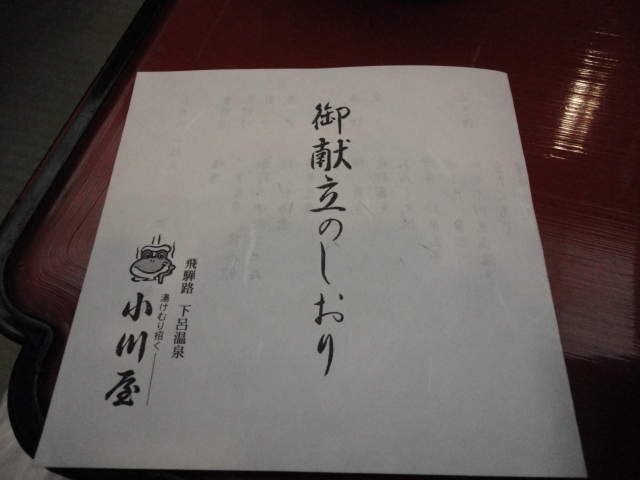 御献立のしおり
飛騨路 下呂温泉
湯けむり招く
小川屋